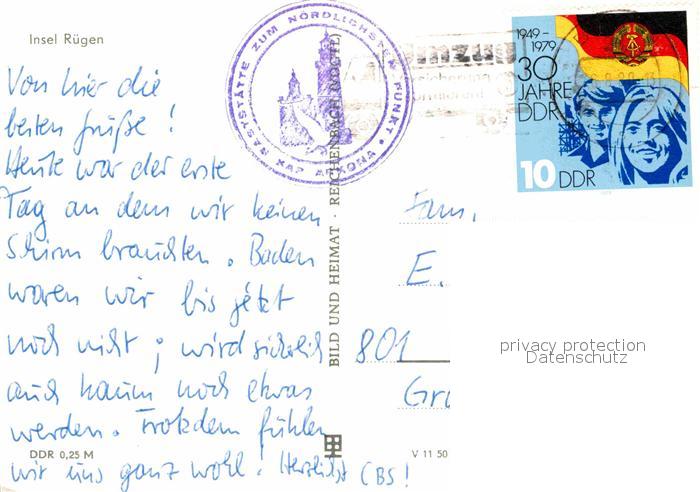 Insel Rügen
Von hier die
besten Grüße!
Heute war der erste
Tag an dem wir keinen
Schirm brauchten. Baden
waren wir bis jetzt
noch nicht; wird sicherlich
auch kaum noch etwas
werden. Trotzdem fühlen
wir uns ganz wohl! Herzlichst CBS!
DDR 0,25 M
BILD UND HEIMAT · REICHENBACH (VOGTL)
V 11 50
GASTSTÄTTE ZUM NÖRDLICHSTEN PUNKT · KAP ARKONA
1949-
1979
30
JAHRE
DDR
10 DDR
Fam.
E.
801
Gr
privacy protection
Datenschutz